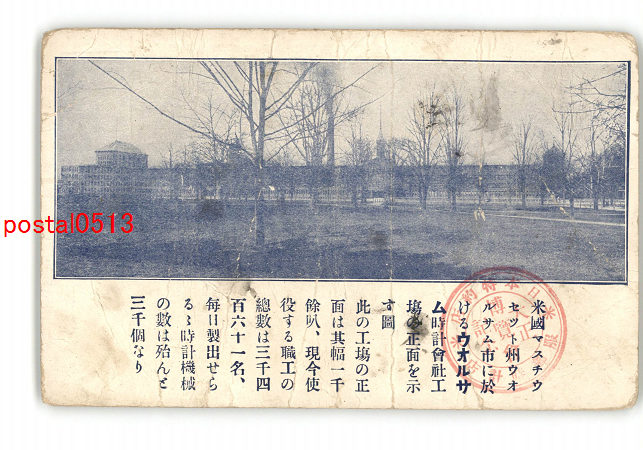 米國マスチウ
セツト州ウオ
ルサム市に於
けるウオルサ
ム時計會社工
塲の正面を示
す圖
此の工塲の正
面は其幅一千
餘呎、現今使
役する職工の
總數は三千四
百六十一名、
毎日製出せら
るゝ時計機械
の數は殆んと
三千個なり
postal0513